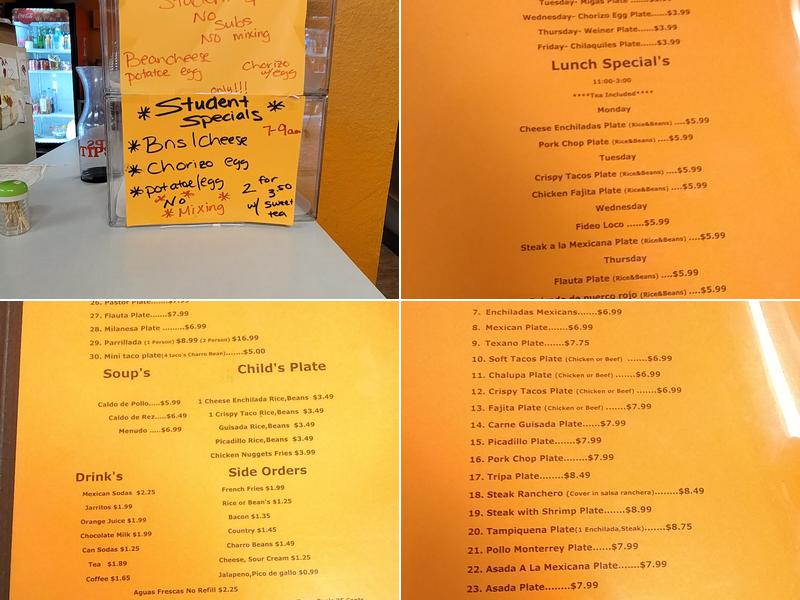 Student
No
Subs
No mixing
Beancheese
potatoe egg
Chorizo
w/egg
only!!!
* Student *
Specials
7-9am
* Bns/Cheese
* Chorizo egg
* potatoe/egg
* No *
* Mixing
2 for
3.50
w/ sweet
tea
Tuesday- Migas Plate......$3.99
Wednesday- Chorizo Egg Plate....$3.99
Thursday- Weiner Plate....$3.99
Friday- Chilaquiles Plate......$3.99
Lunch Special's
11:00-3:00
****Tea Included****
Monday
Cheese Enchiladas Plate (Rice&Beans) ....$5.99
Pork Chop Plate (Rice&Beans) .....$5.99
Tuesday
Crispy Tacos Plate (Rice&Beans) ....$5.99
Chicken Fajita Plate (Rice&Beans) ....$5.99
Wednesday
Fideo Loco ......$5.99
Steak a la Mexicana Plate (Rice&Beans) ....$5.99
Thursday
Flauta Plate (Rice&Beans) ....$5.99
de puerco rojo (Rice&Beans) ....$5.99
26. Pastor Plate......$7.99
27. Flauta Plate......$7.99
28. Milanesa Plate ........$6.99
29. Parrillada (1 Person) $8.99 (2 Person) $16.99
30. Mini taco plate(4 taco's Charro Bean).......$5.00
Soup's
Caldo de Pollo.....$5.99
Caldo de Rez.....$6.49
Menudo .....$6.99
Child's Plate
1 Cheese Enchilada Rice,Beans $3.49
1 Crispy Taco Rice,Beans $3.49
Guisada Rice,Beans $3.49
Picadillo Rice,Beans $3.49
Chicken Nuggets Fries $3.99
Drink's
Mexican Sodas $2.25
Jarritos $1.99
Orange Juice $1.99
Chocolate Milk $1.99
Can Sodas $1.25
Tea $1.89
Coffee $1.65
Aguas Frescas No Refill $2.25
Side Orders
French Fries $1.99
Rice or Bean's $1.25
Bacon $1.35
Country $1.45
Charro Beans $1.49
Cheese, Sour Cream $1.25
Jalapeno,Pico de gallo $0.99
7. Enchiladas Mexicanas......$6.99
8. Mexican Plate......$6.99
9. Texano Plate......$7.75
10. Soft Tacos Plate (Chicken or Beef) .......$6.99
11. Chalupa Plate (Chicken or Beef) .......$6.99
12. Crispy Tacos Plate (Chicken or Beef) ......$6.99
13. Fajita Plate (Chicken or Beef) .......$7.99
14. Carne Guisada Plate......$7.99
15. Picadillo Plate......$7.99
16. Pork Chop Plate......$7.99
17. Tripa Plate......$8.49
18. Steak Ranchero (Cover in salsa ranchera).......$8.49
19. Steak with Shrimp Plate......$8.99
20. Tampiquena Plate(1 Enchilada,Steak).......$8.75
21. Pollo Monterrey Plate......$7.99
22. Asada A La Mexicana Plate......$7.99
23. Asada Plate......$7.99